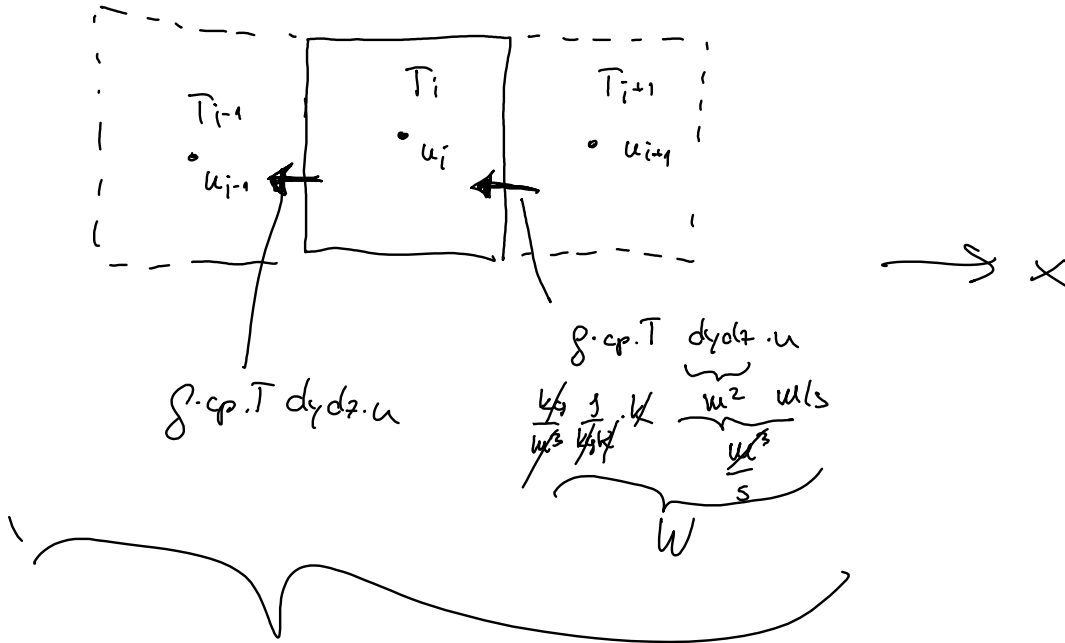 T_{i-1} T_i T_{i+1}
u_{i-1} u_i u_{i+1}
x
ρ·cp·T dydz·u
ρ·cp·T dydz·u
kg/m³ J/kgK ·K m² m/s
m³/s
W